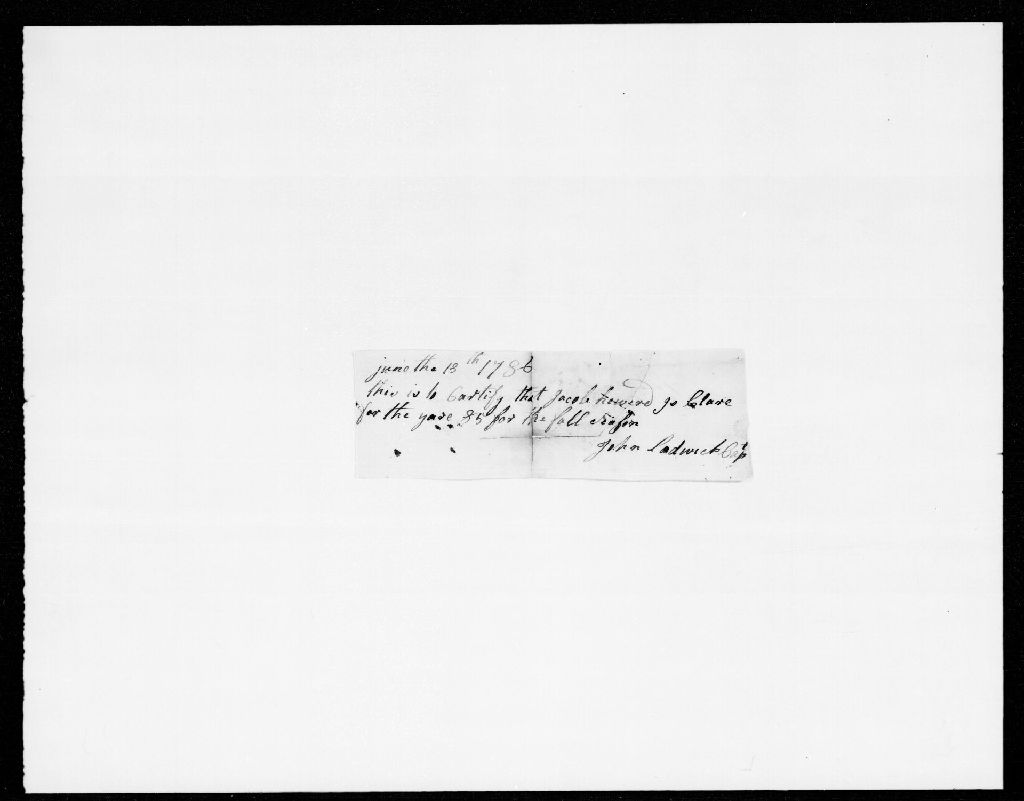 june the 13th 1786
this is to Cartify that Jacob howerd is Clare
for the yare 85 for the fall Seasin
John Ladwick Capt